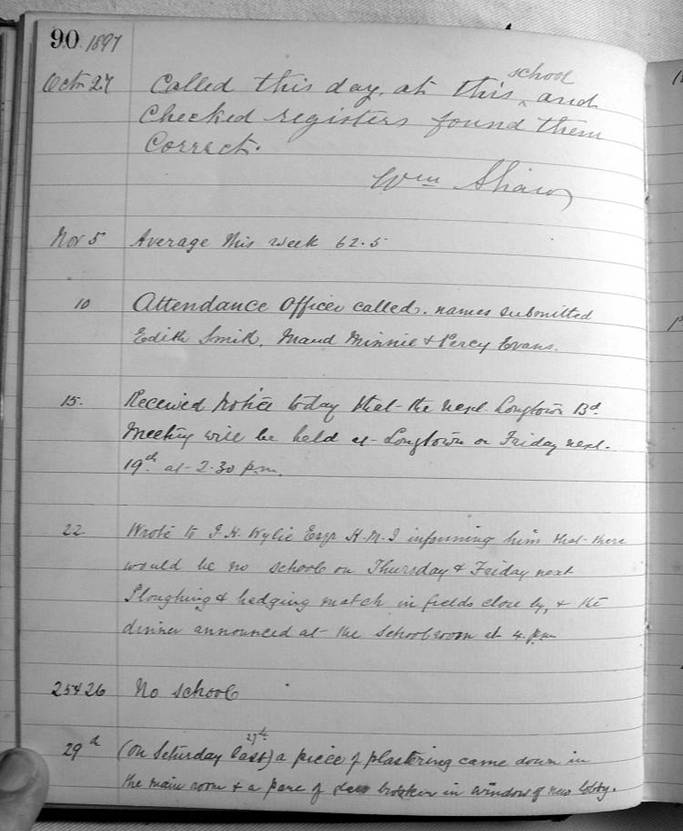 90 1897
Octr 27 Called this day at this school and
Checked registers found them
Correct.
Wm Shaw
Nov 5 Average this week 62.5
10 Attendance Officer called. names submitted
Edith Smith, Maud Minnie & Percy Evans.
15. Received Notice today that the next Longtown Bd
Meeting will be held at Longtown on Friday next.
19th at 2.30 p.m.
22 Wrote to Wylie Esqr H.M.I informing him that there
would be no school on Thursday & Friday next
Ploughing & hedging match in fields close by, & the
dinner announced at the schoolroom at 4. pm
25 & 26 No school
29th (On Saturday last 27th) a piece of plastering came down in
the main room & a pane of broken in window of new lobby.